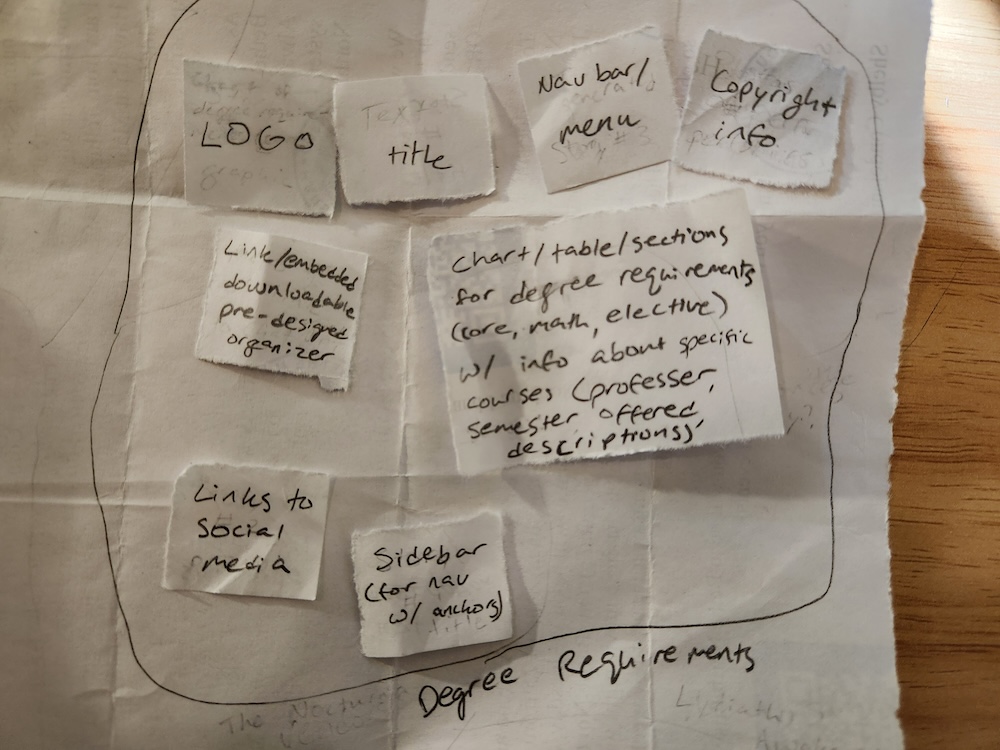 LOGO
title
Nav bar/
menu
Copyright
info
Link/embedded
downloadable
pre-designed
organizer
Chart/table/sections
for degree requirements
(core, math, elective)
w/ info about specific
courses (professer,
semester offered
descriptions)
Links to
Social
media
Sidebar
(for nav
w/ anchors)
Degree Requirements
The